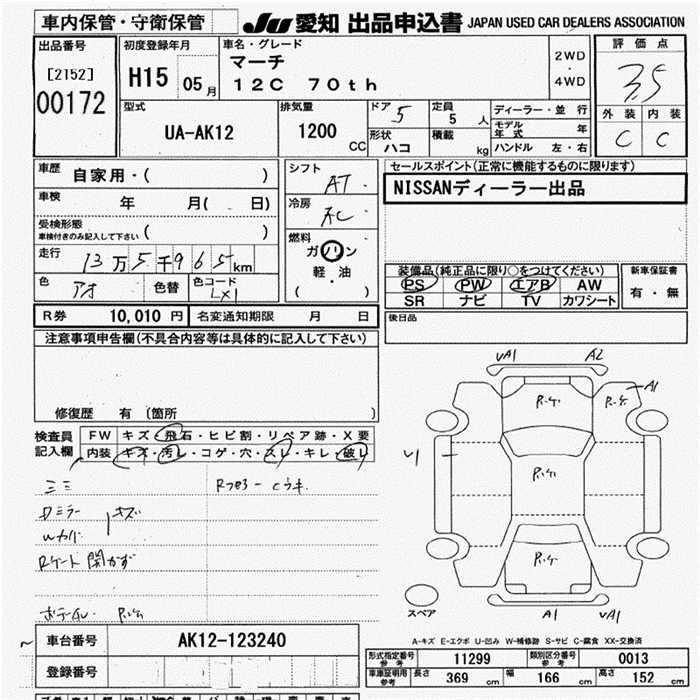 車内保管・守衛保管
JU 愛知 出品申込書 JAPAN USED CAR DEALERS ASSOCIATION
出品番号
[2152]
00172
初度登録年月
H15 05月
車名・グレード
マーチ
12C 70th
2WD
・
4WD
評価点
3.5
外装 内装
C C
型式
UA-AK12
排気量
1200 CC
ドア 5
形状 ハコ
定員 5 人
積載 kg
ディーラー・並行
モデル年式 年
ハンドル 左・右
車歴 自家用・( )
車検 年 月( 日)
受検形態
車検付きのみ記入して下さい ( )
走行 13万5千965km
色 アオ 色替 色コード LX1
シフト
AT
冷房
AC
燃料
ガソリン
軽・油
( )
セールスポイント(正常に機能するものに限ります)
NISSANディーラー出品
装備品(純正品に限り○をつけてください)
PS PW エアB AW
SR ナビ TV カワシート
新車保証書
有・無
後日品
R券 10,010円 名変通知期限 月 日
注意事項申告欄(不具合内容等は具体的に記入して下さい)
修復歴 有 〔箇所 〕
検査員記入欄
FW キズ・飛石・ヒビ割・リペア跡・X要
内装 キズ・汚レ・コゲ・穴・スレ・キレ・破レ
ミミ
キズ
開かず
UA1 A2
A1
U1
A1 UA1
スペア
A-キズ E-エクボ U-凹み W-補修跡 S-サビ C-腐食 XX-交換済
車台番号 AK12-123240
登録番号
形式指定番号 参考 11299 類別区分番号 参考 0013
車庫証明用 参考 長さ 369 cm 幅 166 cm 高さ 152 cm